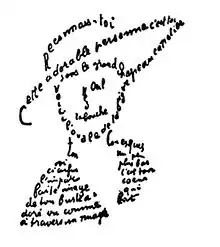 Reconnais-toi
Cette adorable personne c'est toi
Sous le grand chapeau canotier
Œil
La bouche
Voici l'ovale de ta figure
Ton
cou exquis
Voi
ci enfin
l'impar
faite image
de ton buste a
doré vu comme
à travers un nuage
un peu
plus bas
c'est ton
cœur
qui
bat